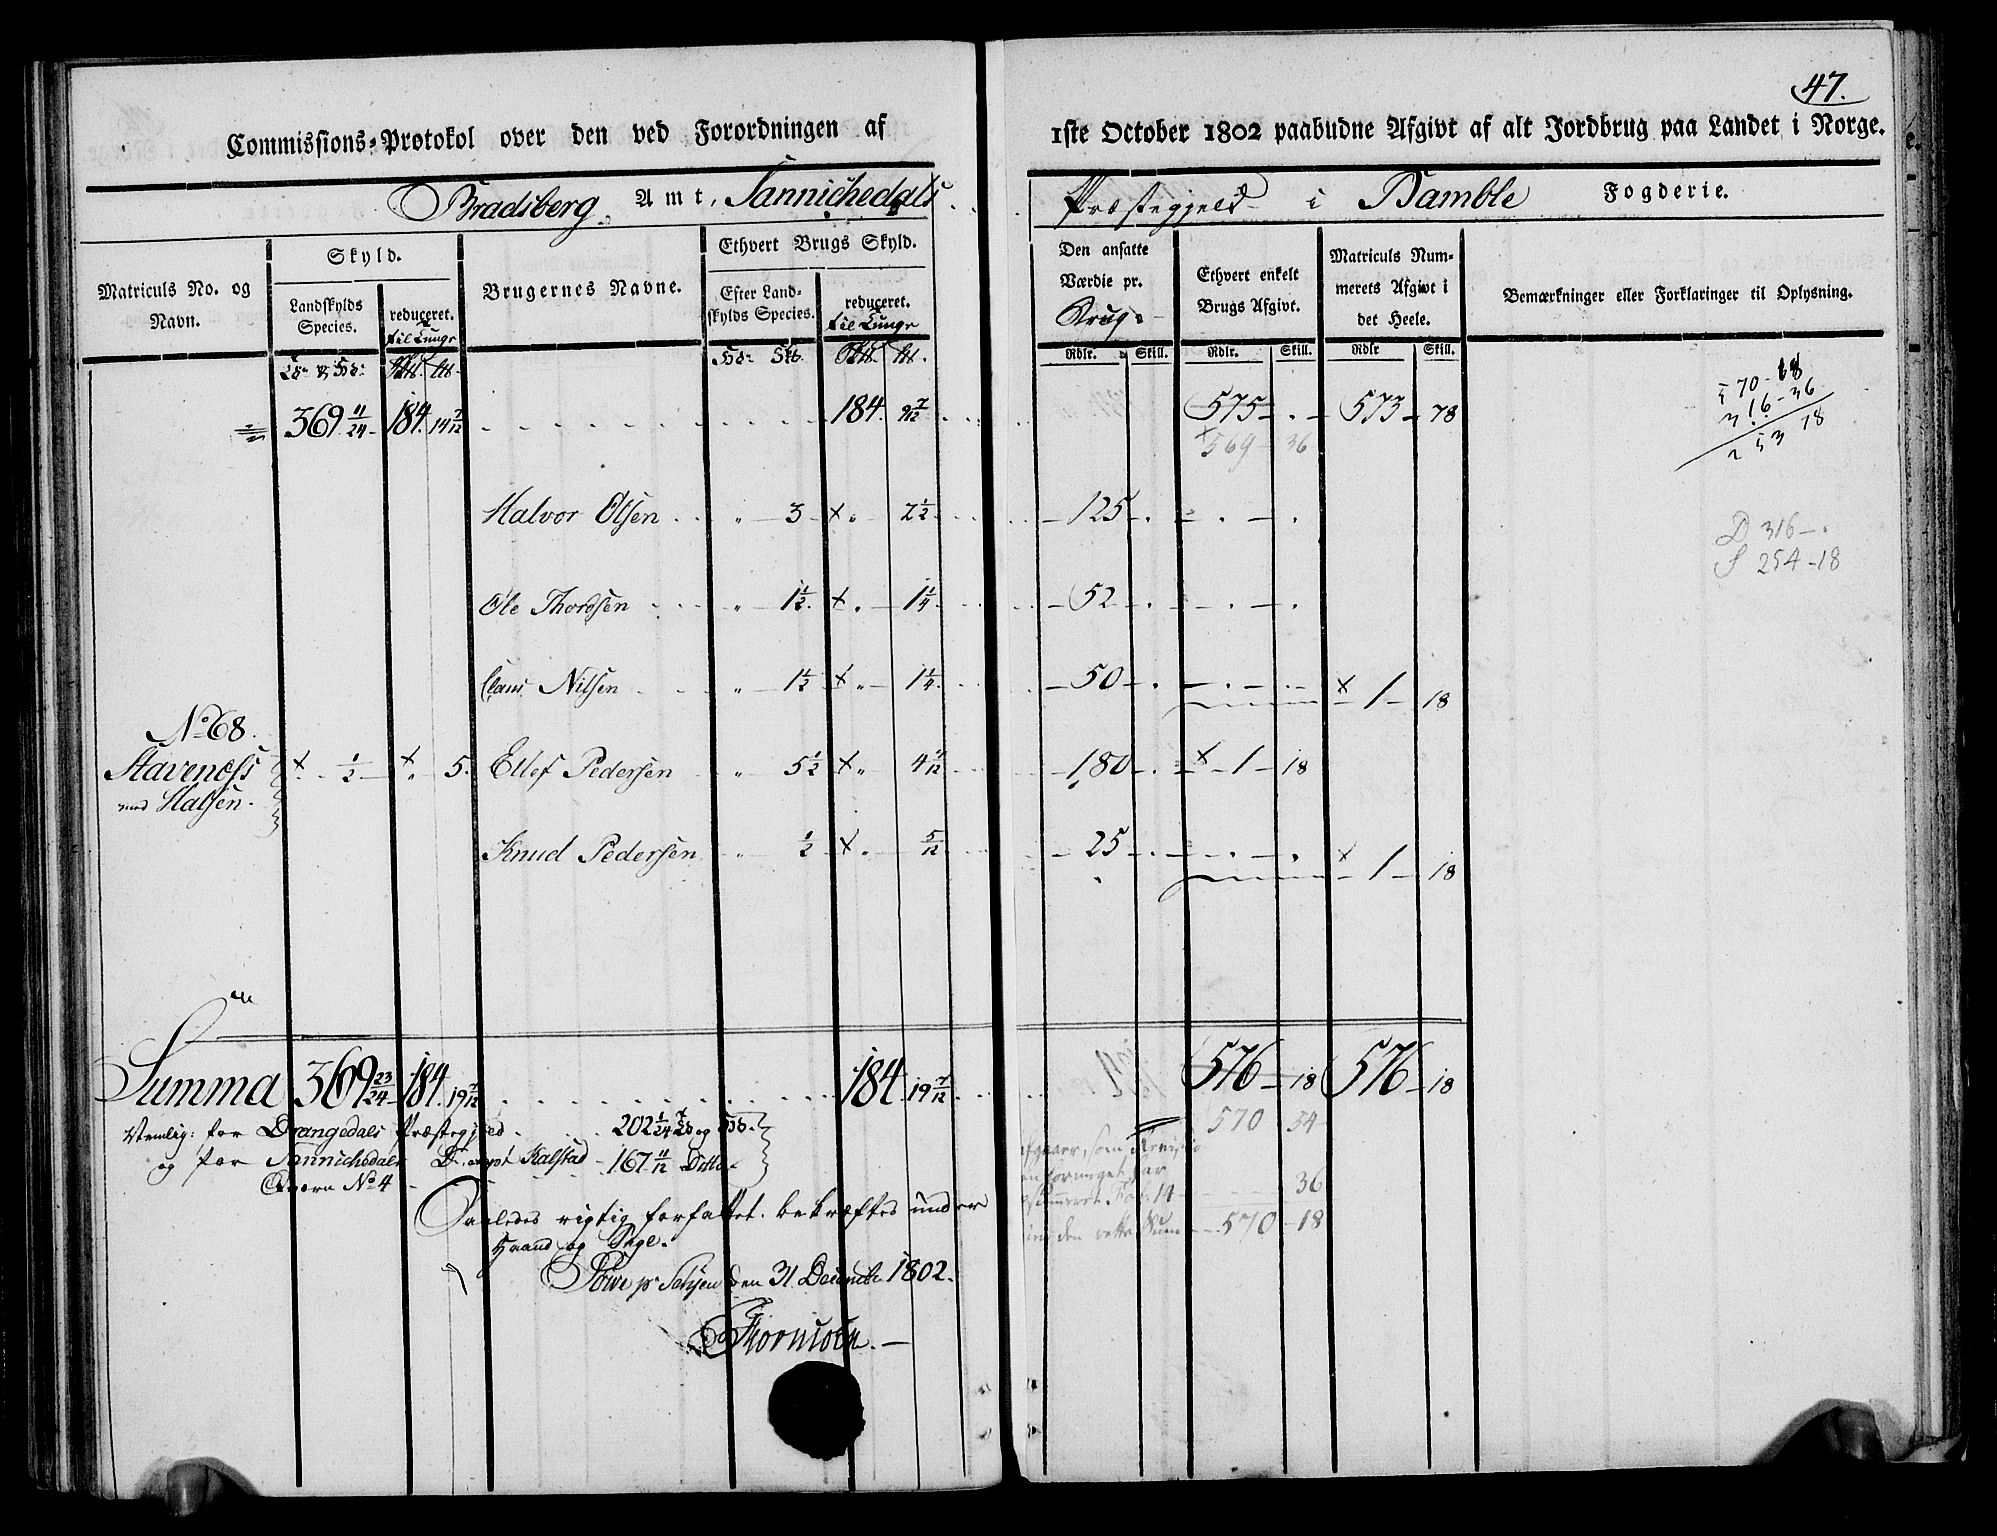 47.
Commissions-Protokol over den ved Forordningen af 1ste October 1802 paabudne Afgivt af alt Jordbrug paa Landet i Norge.
Bradsberg Amt, Sannichedals Præstegjeld i Bamble Fogderie.
Matriculs No. og Navn.
Skyld.
Landskylds Species.
reduceret. til Tunge
Brugernes Navne.
Ethvert Brugs Skyld.
Efter Landskylds Species.
reduceret. til Tunge
Den ansatte Værdie pr. Brug.
Ethvert enkelt Brugs Afgivt.
Matriculs Nummerets Afgivt i det Heele.
Bemærkninger eller Forklaringer til Oplysning.
Rdlr. Skill. Rdlr. Skill. Rdlr Skill.
369 11/24 184. 14 7/12 184. 9 7/12 575 - . - 573 - 78
569 - 36
570 - 18
316 - 36
253 78
Halvor Olsen . . . " - 3 - x " - 2 1/2 - 125 - . - . - .
D 316 - .
S 254 - 18
Ole Thordsen " - 1 1/2 x " - 1 1/4 - 52 - . - . - .
Claus Nilsen " - 1 1/2 x " - 1 1/4 - 50 - . - . - . - x - 1 - 18
No 68.
Stavenæss med Halsen.
x - 1/2 - x " 5. Ellef Pedersen " 5 1/2 x " 4 11/12 - 180 - . - x - 1 - 18
Knud Pedersen " 1/2 x " 5/12 - 25 - . - . - . x - 1 - 18
Summa 369 23/24 184. 19 7/12 184 19 7/12 576 - 18 576 - 18
Nemlig: for Drangedals Præstegjeld . . 202 1/24 og
570 54
og for Sannichedals D. Kalstad - 167 11/12 Ditto
Qværn No 4
afgaaer, som
36
14
den rette Sum - 570 - 18
Saaledes rigtig forfattet. bekræftes under
Haand og Segl.
den 31 Decembr 1802.